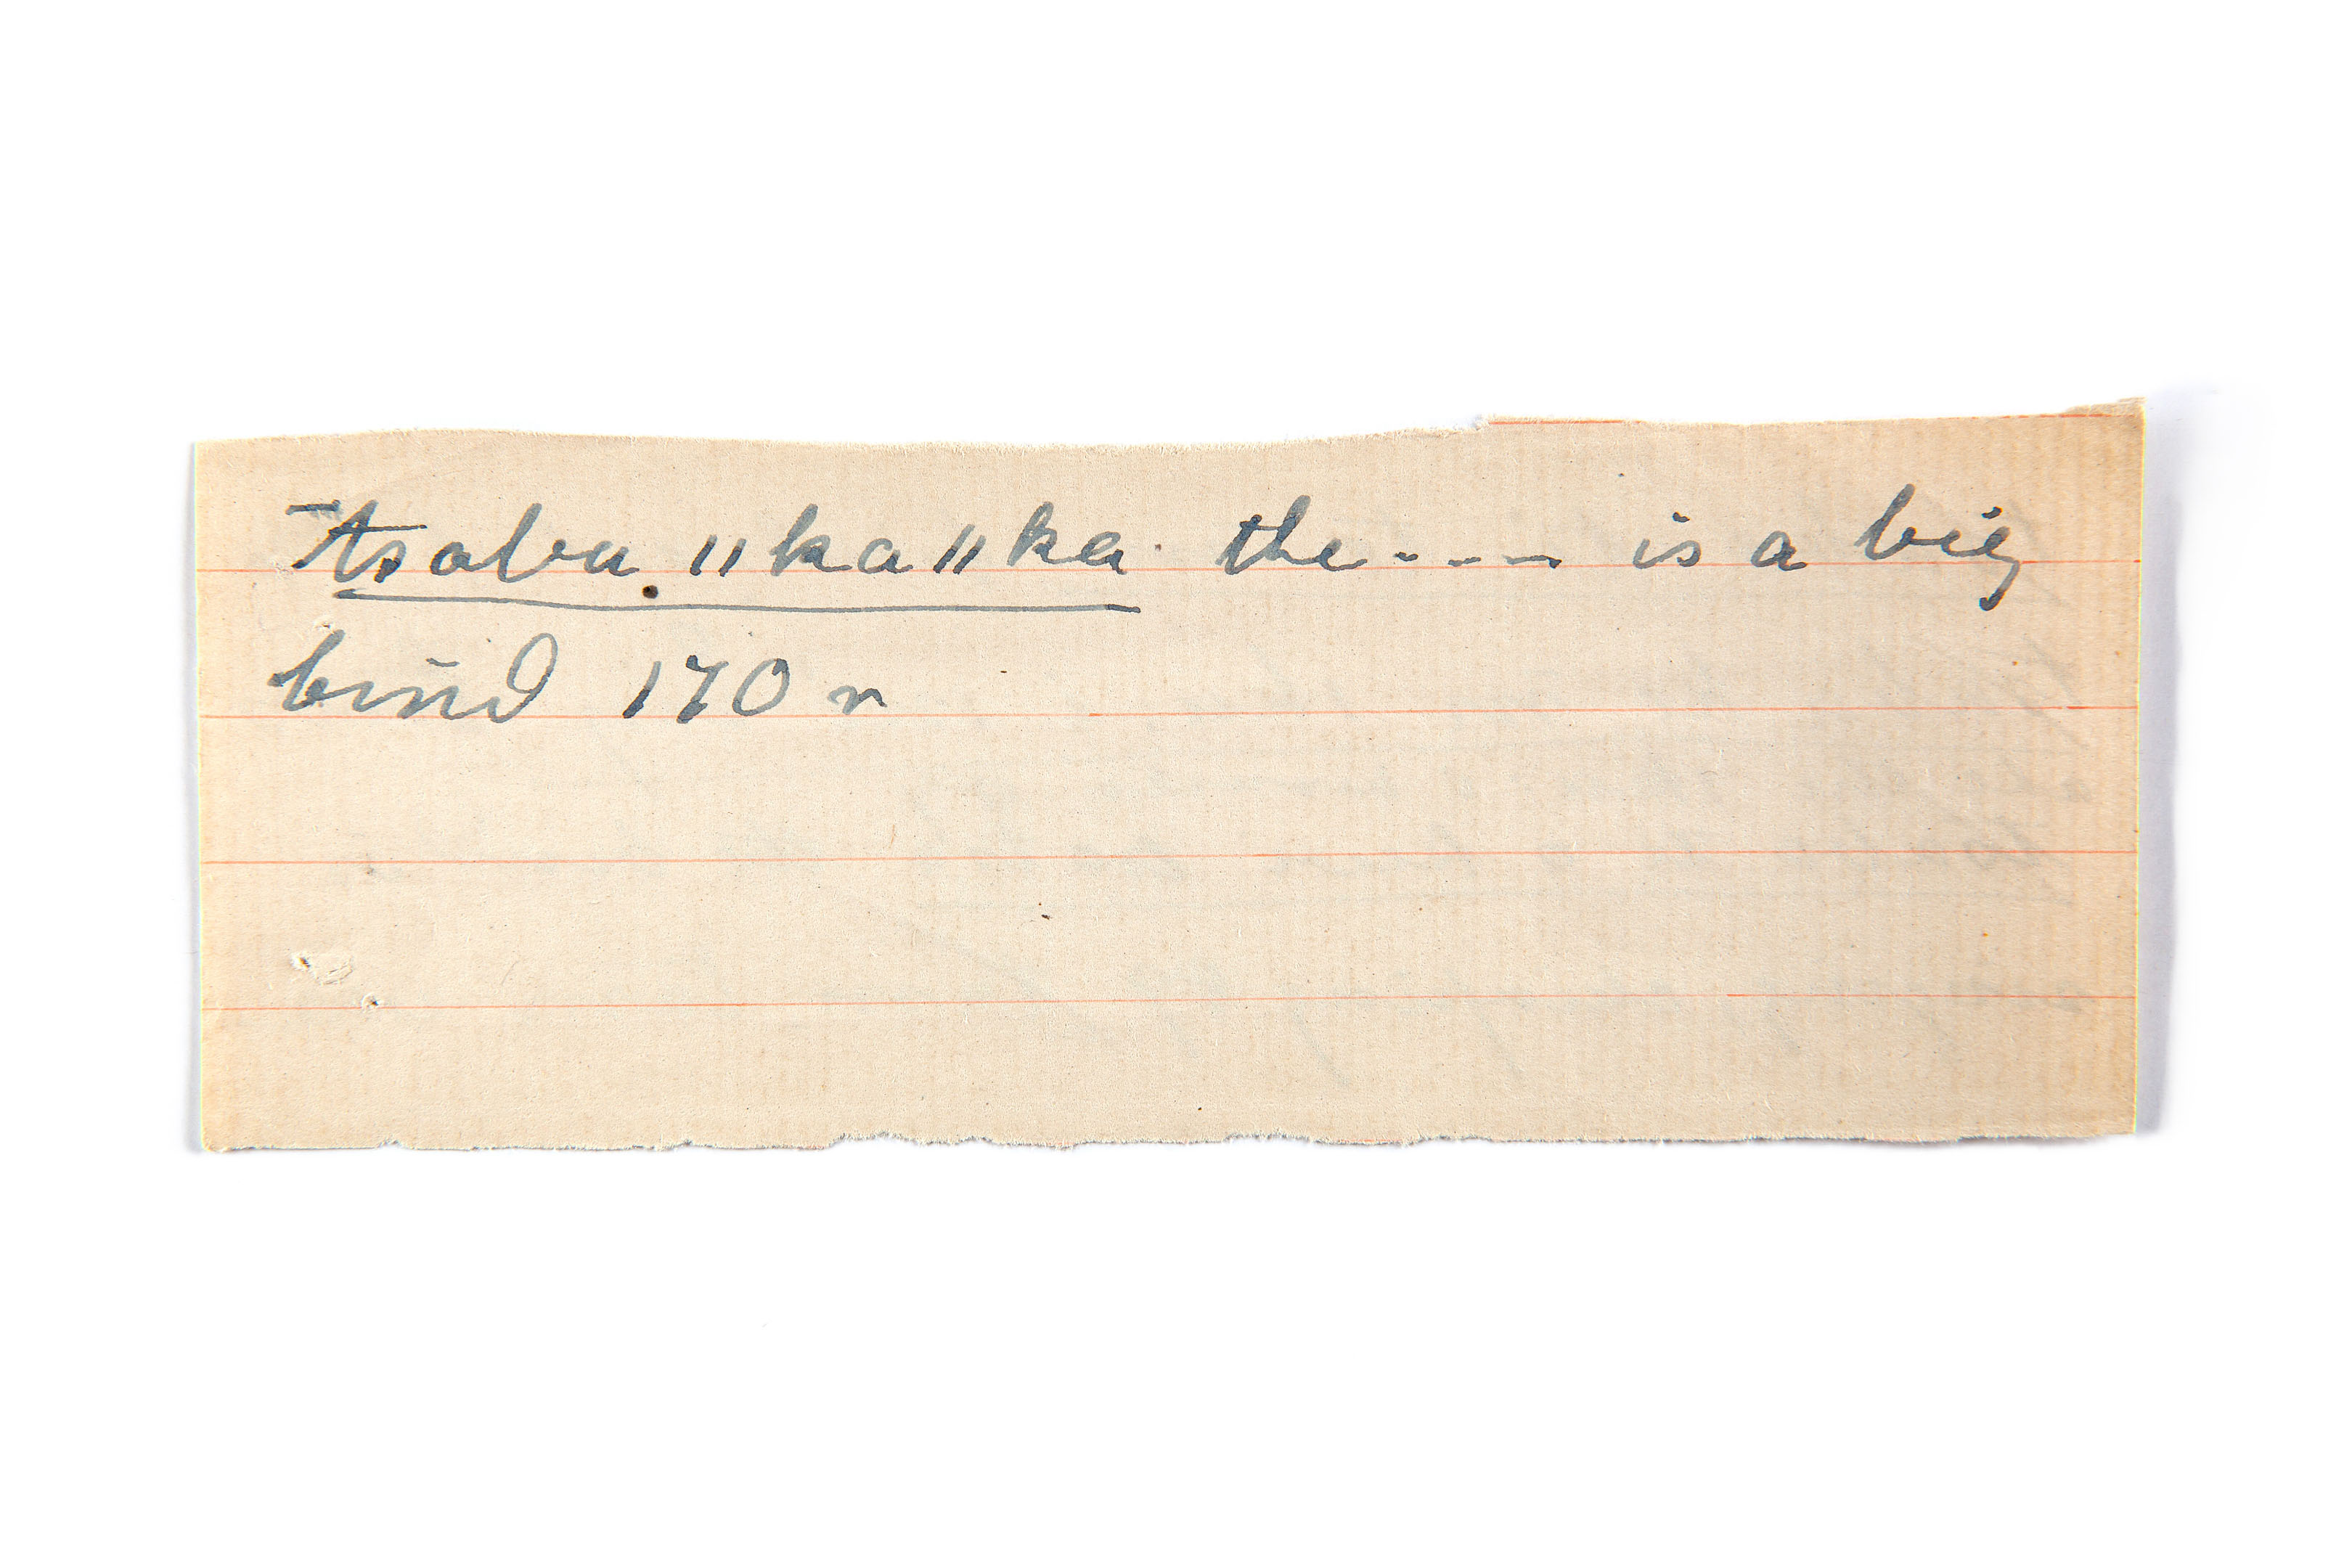 tsaba ǁkaǁka the ---- is a big
bird 170 r